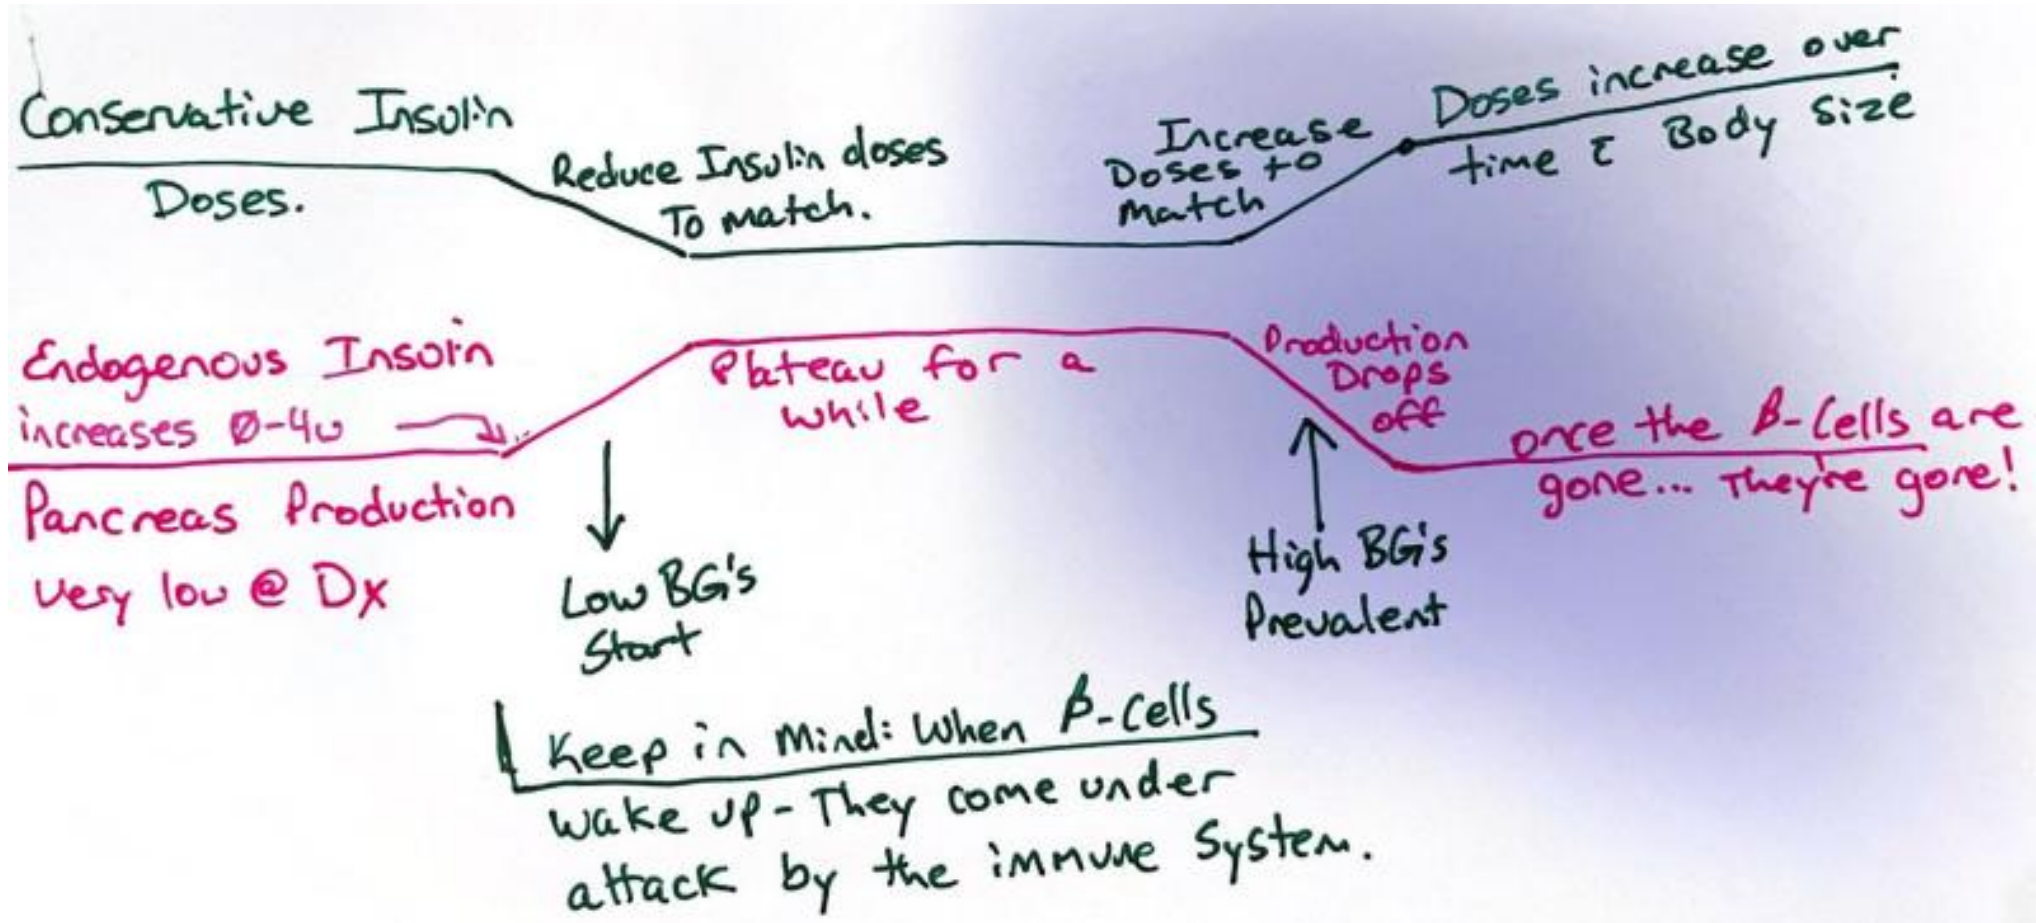 Conservative Insulin
Doses.
Reduce Insulin doses
To match.
Increase
Doses to
Match
Doses increase over
time c̄ Body Size
Endogenous Insulin
increases Ø-4u
Pancreas Production
very low @ Dx
Plateau for a
while
Production
Drops
off
once the β-Cells are
gone... They're gone!
Low BG's
Start
High BG's
Prevalent
Keep in Mind: When β-Cells
wake up - They come under
attack by the immune System.